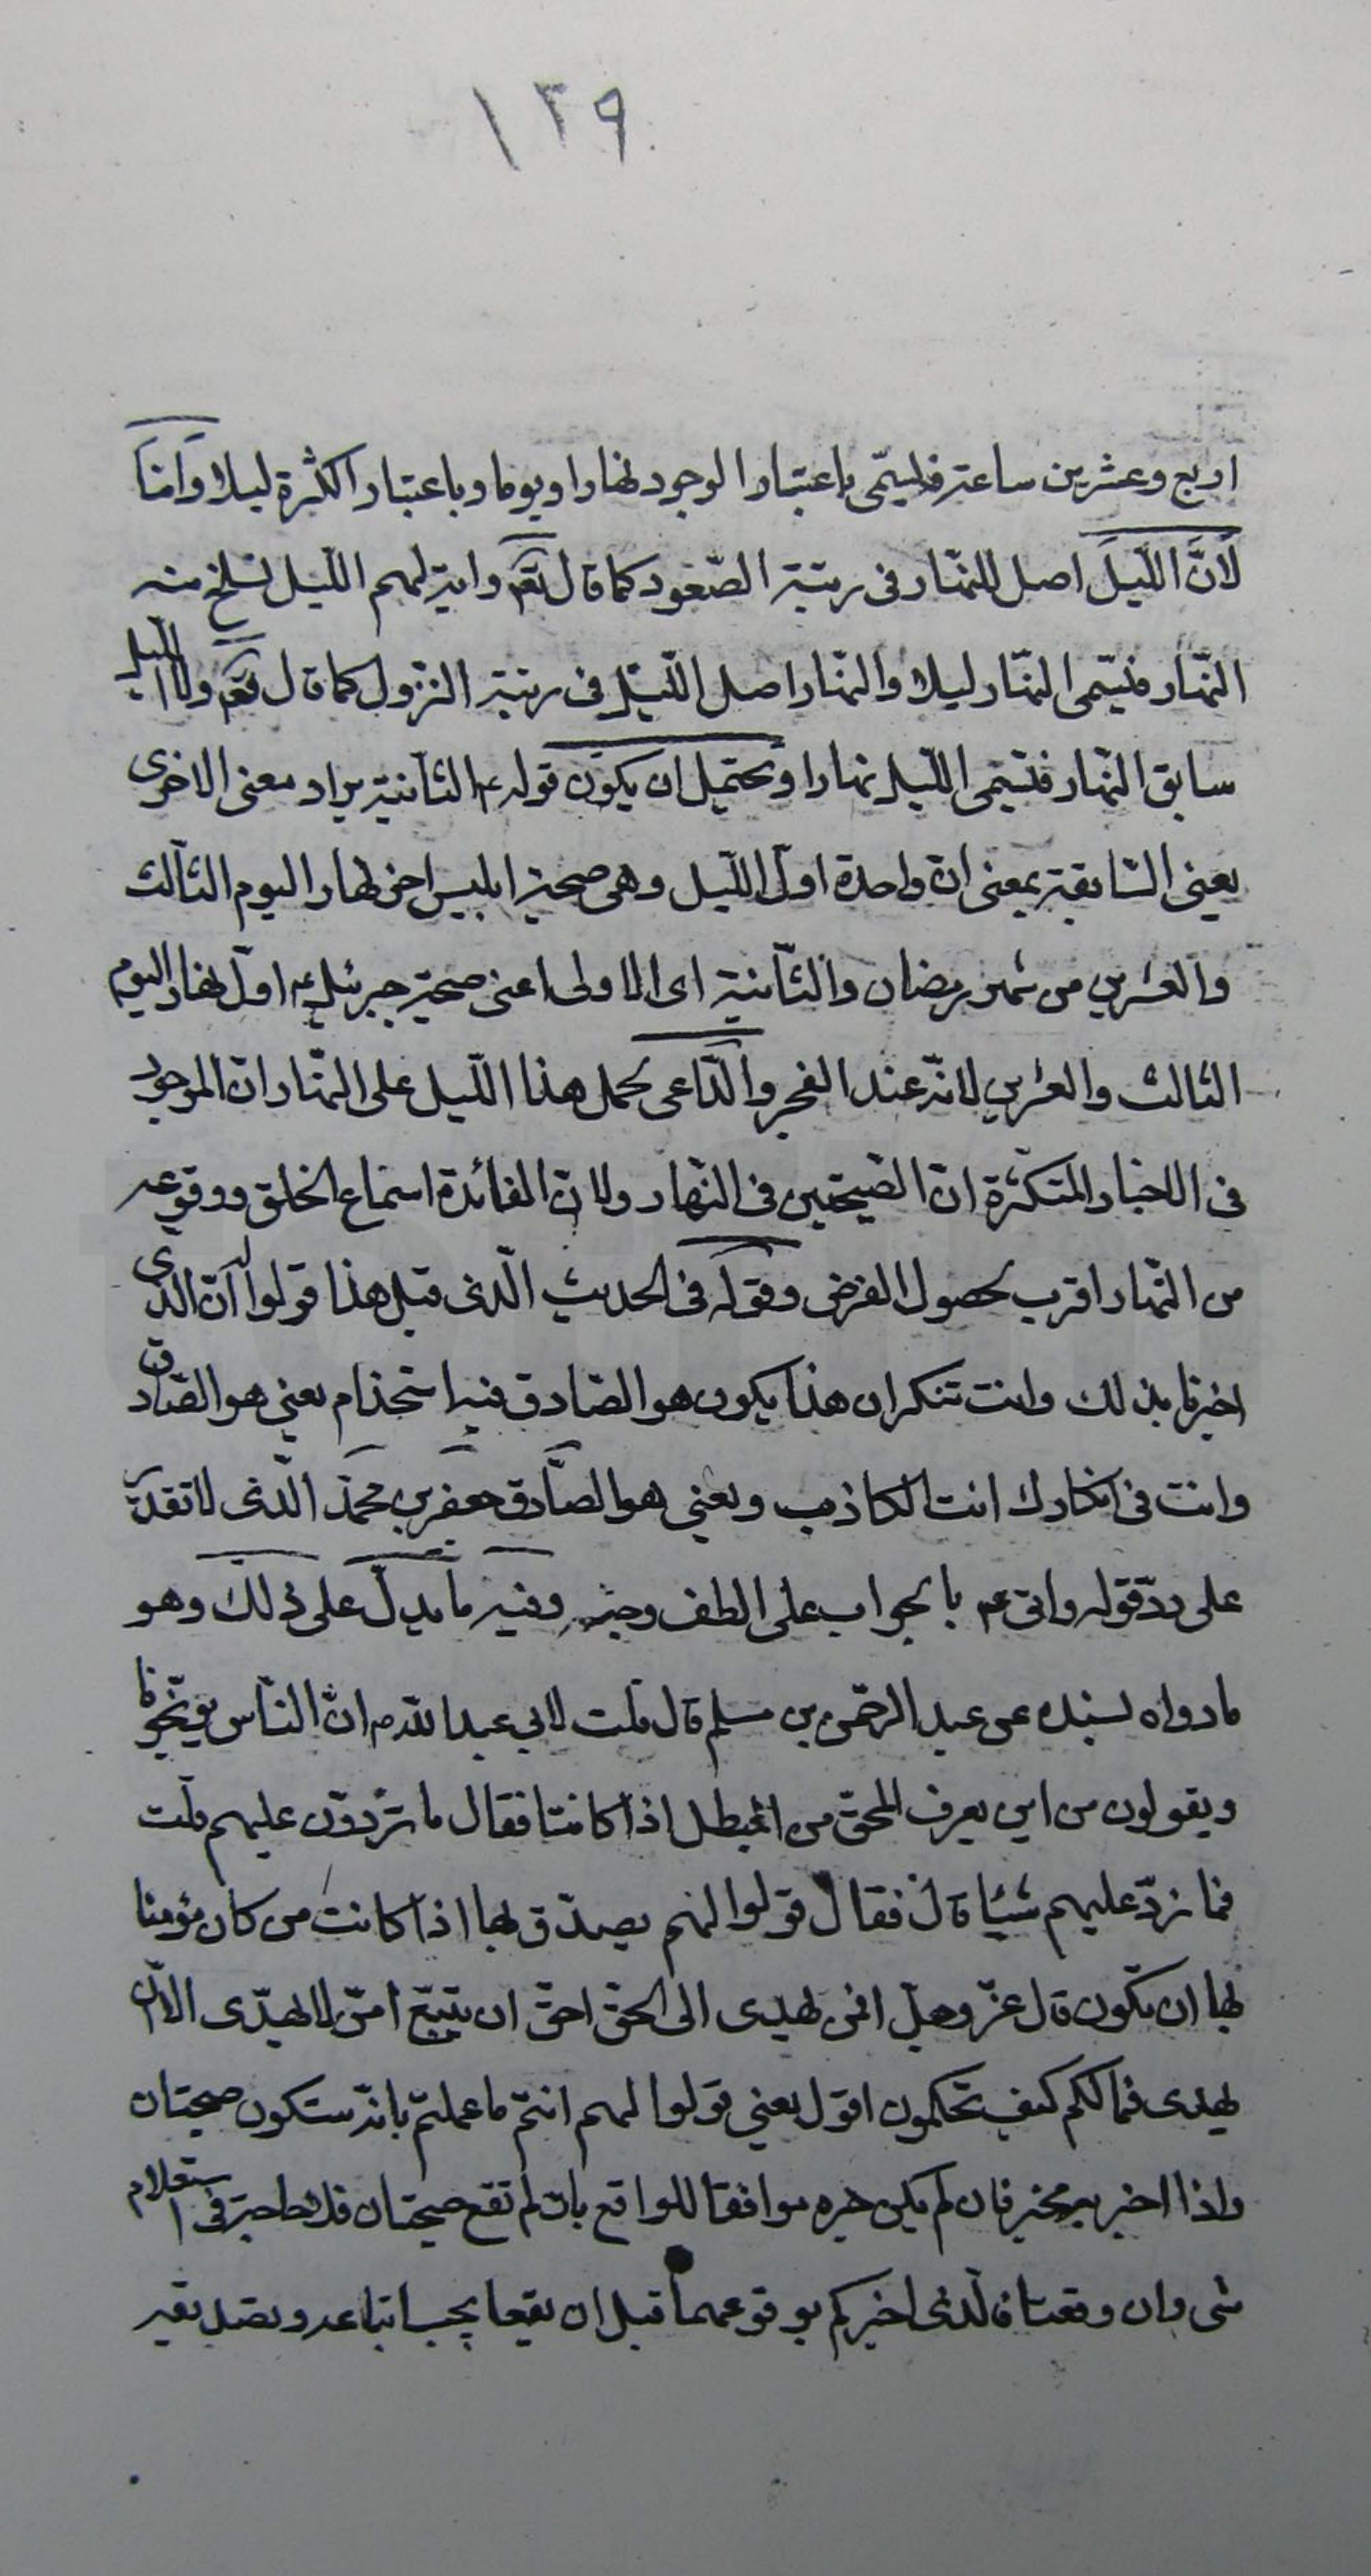 ١٣٩
اربع وعشرين ساعة فليسمّى باعتبار الوجود نهارا ويوما وباعتبار الكثرة ليلا وامّا
لأنَّ اللّيلَ اصل للنّهار فى رتبة الصّعود كما قال تعم واية لهم اللّيل نسلخ منه
النّهار فيسمّى النّهار ليلا والنّهار اصل اللّيل فى رتبة النزول كما قال تعم ولا اللّيل
سابق النّهار فيسمّى اللّيل نهارا ويحتمل ان يكون قوله ع الثّانية يراد معنى الاخرى
يعنى السّابقة بمعنى انّ واحدة اوّل اللّيل وهى صيحة ابليس اخر نهار اليوم الثّالث
والعشرين من شهر رمضان والثّانية اى الاولى اعنى صيحة جبرئيل ع اوّل نهار اليوم
الثالث والعشرين لانّه عند الفجر والدّاعى لحمل هذا اللّيل على النّهار انّ الموجود
فى الاخبار المتكثّرة انّ الصّيحتين فى النّهار ولانّ الفائدة استماع الخلق ووقوعه
من النّهار اقرب لحصول الغرض وقوله فى الحديث الّذى قبل هذا قولوا له انّ الذى
اخبرنا بذلك وانت تنكر ان هذا يكون هو الصّادق فيه استخدام يعنى هو الصّادق
وانت فى انكارك انت الكاذب ويعنى هو الصّادق جعفر بن محمّد الّذى لا تقدر
على ردّ قوله واتى ع بالجواب على الطف وجه وفيه ما يدلّ على ذلك وهو
ما رواه بسنده عن عبد الرحمن بن مسلم قال قلت لابى عبد الله ع انّ النّاس يوبّخونا
ويقولون من اين يعرف المحقّ من المبطل اذا كانتا فقال ما تردّون عليهم قلت
فما نردّ عليهم شيئا قال فقال قولوا لهم يصدّق بها اذا كانت من كان مؤمنا
بها ان تكون قال عزّ وجلّ افمن يهدى الى الحقّ احقّ ان يتّبع امّن لا يهدّى الاّ ان
يهدى فما لكم كيف تحكمون اقول يعنى قولوا لهم انتم ما عملتم بانّه ستكون صيحتان
واذا اخبر به مخبر فان لم يكن خبره موافقا للواقع بان لم تقع صيحتان فلا حاجة فى استعلام
شى وان وقعتا فالّذى اخبركم بوقوعهما قبل ان يقعا يجب اتباعه وتصديقه